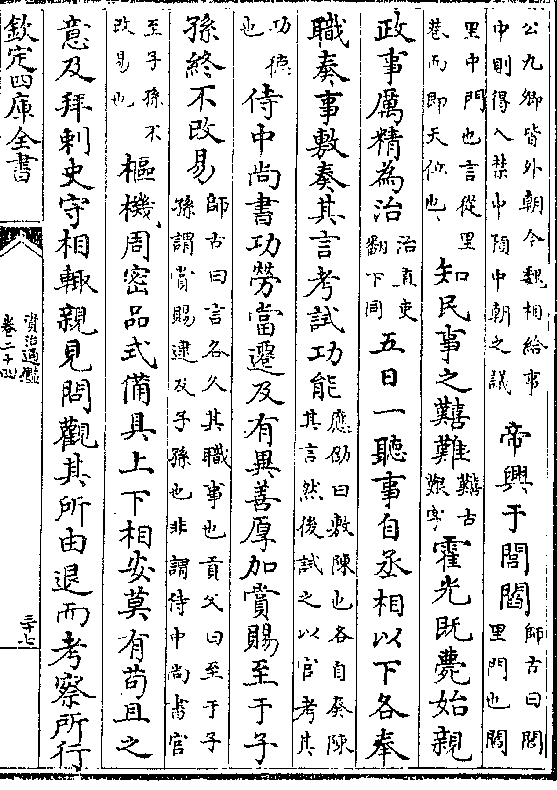 公九卿皆外朝今魏相給事
中則得入禁中預中朝之議
帝興于閭閻
師古曰閭
里門也閻
里中門也言從里
巷而即天位也
知民事之囏難
囏古
艱字
霍光既薨始親
政事厲精為治
治直吏
翻下同
五日一聽事自丞相以下各奉
職奏事敷奏其言考試功能
應劭曰敷陳也各自奏陳
其言然後試之以官考其
功德
也
侍中尚書功勞當遷及有異善厚加賞賜至于子
孫終不改易
師古曰言各久其職事也貢父曰至于子
孫謂賞賜逮及子孫也非謂侍中尚書官
至子孫不
改易也
樞機周密品式備具上下相安莫有苟且之
意及拜刺史守相輒親見問觀其所由退而考察所行
欽定四庫全書
資治通鑑
卷二十四
三十七